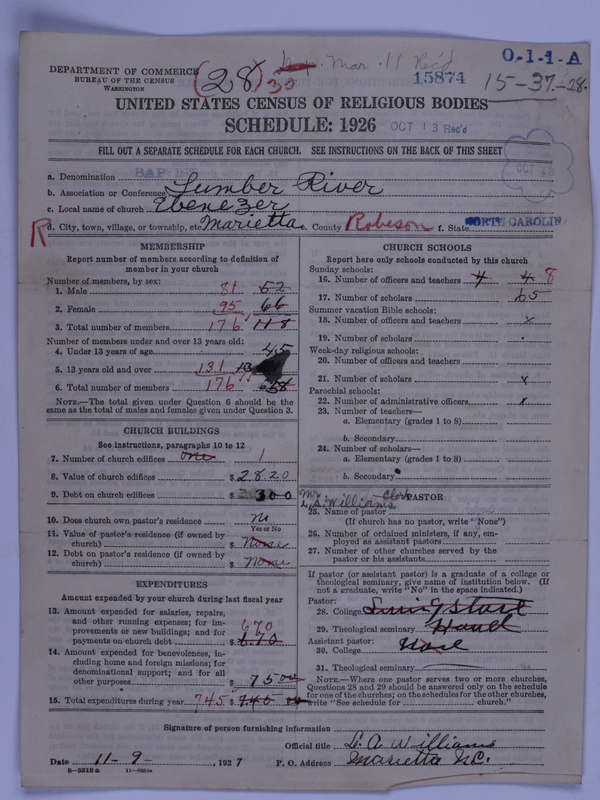 DEPARTMENT OF COMMERCE
BUREAU OF THE CENSUS
WASHINGTON
(28)
30
Mar. 11 Rec'd
15874
O-1-1-A
15-37-28.
UNITED STATES CENSUS OF RELIGIOUS BODIES
SCHEDULE: 1926
OCT 13 Rec'd
FILL OUT A SEPARATE SCHEDULE FOR EACH CHURCH. SEE INSTRUCTIONS ON THE BACK OF THIS SHEET
a. Denomination BAP
b. Association or Conference Lumber River
c. Local name of church Ebenezer
R d. City, town, village, or township, etc. Marietta e. County Robeson f. State NORTH CAROLIN
MEMBERSHIP
Report number of members according to definition of
member in your church
Number of members, by sex:
1. Male 81 52
2. Female 95 66
3. Total number of members 176 118
Number of members under and over 13 years old:
4. Under 13 years of age 45
5. 13 years old and over 131
6. Total number of members 176
NOTE.—The total given under Question 6 should be the
same as the total of males and females given under Question 3.
CHURCH BUILDINGS
See instructions, paragraphs 10 to 12
7. Number of church edifices one 1
8. Value of church edifices $ 2820
9. Debt on church edifices $ 300
10. Does church own pastor's residence no
Yes or No
11. Value of pastor's residence (if owned by
church) $ None
12. Debt on pastor's residence (if owned by
church) $ None
EXPENDITURES
Amount expended by your church during last fiscal year
13. Amount expended for salaries, repairs,
and other running expenses; for im-
provements or new buildings; and for
payments on church debt $ 670 670
14. Amount expended for benevolences, in-
cluding home and foreign missions; for
denominational support; and for all
other purposes $ 75 00
15. Total expenditures during year 745 $ 745
CHURCH SCHOOLS
Report here only schools conducted by this church
Sunday schools:
16. Number of officers and teachers 4 4 8
17. Number of scholars 65
Summer vacation Bible schools:
18. Number of officers and teachers x
19. Number of scholars
Week-day religious schools:
20. Number of officers and teachers
21. Number of scholars x
Parochial schools:
22. Number of administrative officers x
23. Number of teachers—
a. Elementary (grades 1 to 8)
b. Secondary
24. Number of scholars—
a. Elementary (grades 1 to 8)
b. Secondary
PASTOR
Mr. L. A. Williams Clerk
25. Name of pastor
(If church has no pastor, write "None")
26. Number of ordained ministers, if any, em-
ployed as assistant pastors
27. Number of other churches served by the
pastor or his assistants
If pastor (or assistant pastor) is a graduate of a college or
theological seminary, give name of institution below. (If
not a graduate, write "No" in the space indicated.)
Pastor:
28. College
29. Theological seminary
Assistant pastor:
30. College None
31. Theological seminary
NOTE.—Where one pastor serves two or more churches,
Questions 28 and 29 should be answered only on the schedule
for one of the churches; on the schedules for the other churches,
write "See schedule for church."
Signature of person furnishing information
Official title L. A. Williams
Date 11-9-, 1927 P. O. Address Marietta N.C.
8-5518 a